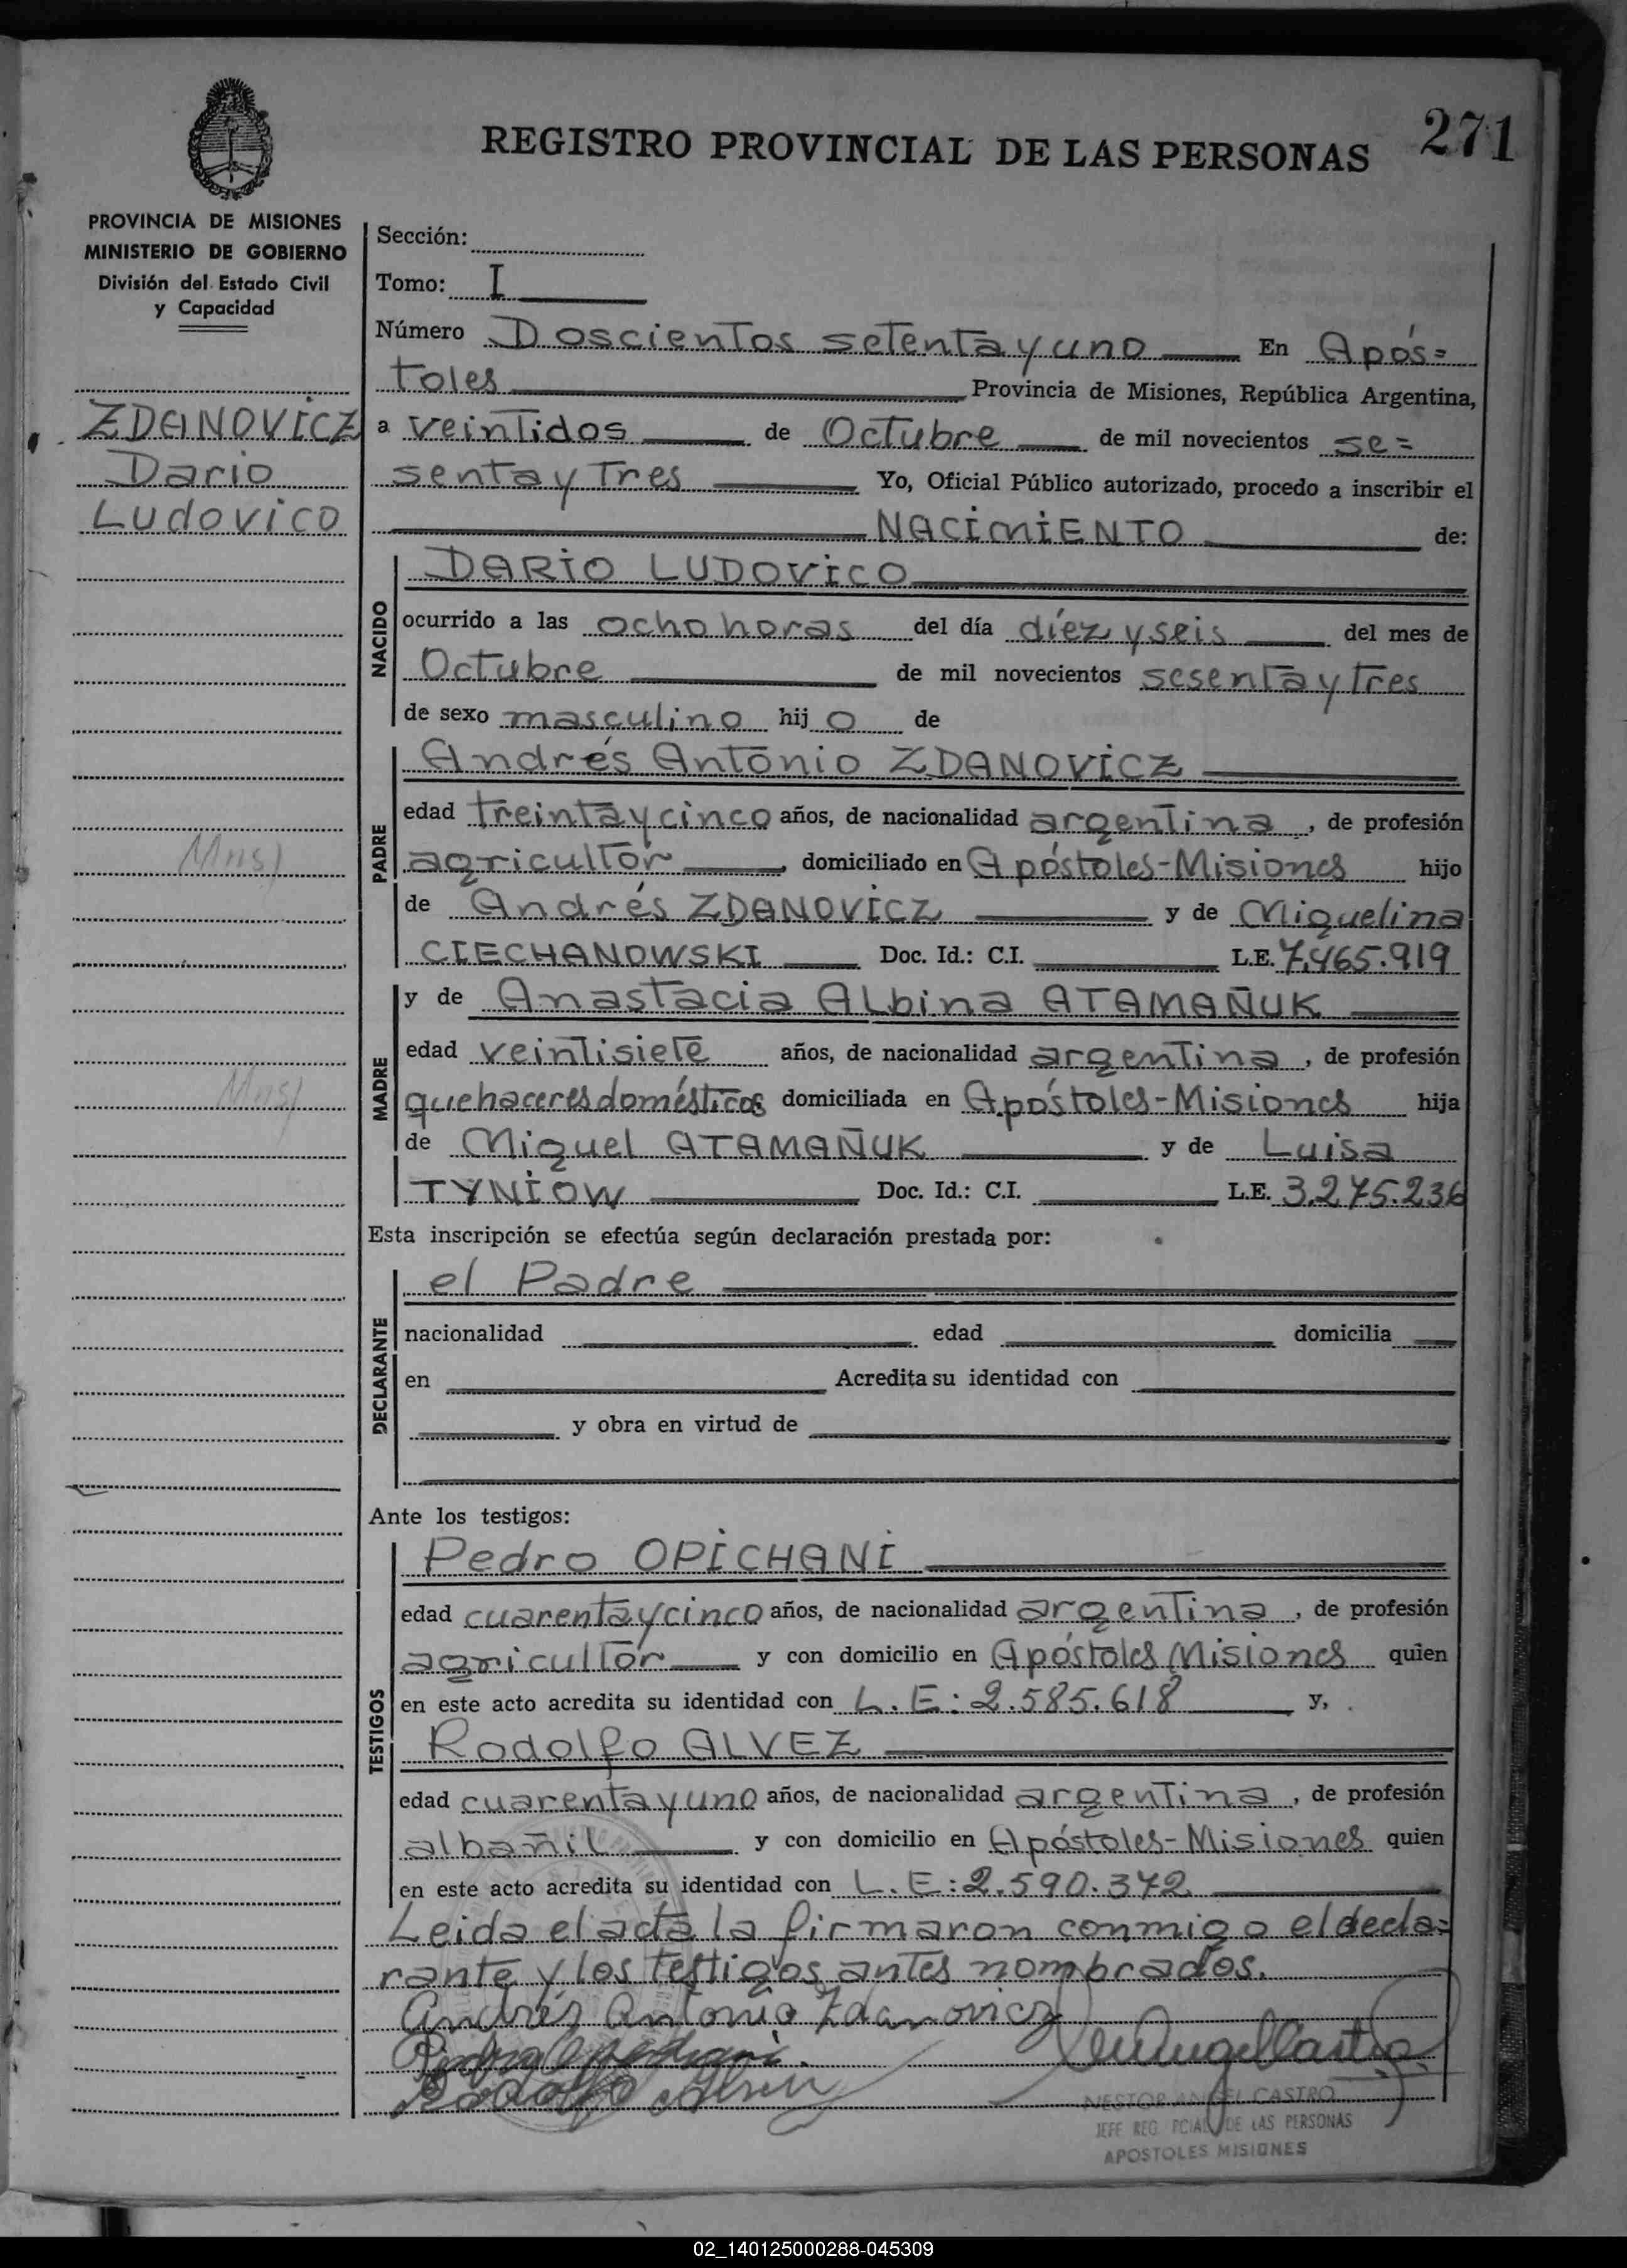 REGISTRO PROVINCIAL DE LAS PERSONAS
271
PROVINCIA DE MISIONES
MINISTERIO DE GOBIERNO
División del Estado Civil
y Capacidad
ZDANOVICZ
Dario
Ludovico
Sección:
Tomo: I
Número Doscientos setenta y uno En Após=
toles Provincia de Misiones, República Argentina,
a veintidos de Octubre de mil novecientos se=
senta y tres Yo, Oficial Público autorizado, procedo a inscribir el
NACIMIENTO de:
NACIDO
DARIO LUDOVICO
ocurrido a las ocho horas del día díez y seis del mes de
Octubre de mil novecientos sesenta y tres
de sexo masculino hijo de
PADRE
Andrés Antonio ZDANOVICZ
edad treinta y cinco años, de nacionalidad argentina, de profesión
agricultor, domiciliado en Apóstoles-Misiones hijo
de Andrés ZDANOVICZ y de Miguelina
CIECHANOWSKI Doc. Id.: C.I. L.E. 7.465.919
MADRE
y de Anastacia Albina ATAMAÑUK
edad veintisiete años, de nacionalidad argentina, de profesión
quehaceres domésticos domiciliada en Apóstoles-Misiones hija
de Miguel ATAMAÑUK y de Luisa
TYNIOW Doc. Id.: C.I. L.E. 3.275.236
Esta inscripción se efectúa según declaración prestada por:
DECLARANTE
el Padre
nacionalidad edad domicilia
en Acredita su identidad con
y obra en virtud de
Ante los testigos:
TESTIGOS
Pedro OPICHANI
edad cuarenta y cinco años, de nacionalidad argentina, de profesión
agricultor y con domicilio en Apóstoles Misiones quien
en este acto acredita su identidad con L.E: 2.585.618 y,
Rodolfo ALVEZ
edad cuarenta y uno años, de nacionalidad argentina, de profesión
albañil y con domicilio en Apóstoles-Misiones quien
en este acto acredita su identidad con L.E: 2.590.372
Leida el acta la firmaron conmigo el decla=
rante y los testigos antes nombrados.
Andrés Antonio Zdanovicz
Rodolfo
NESTOR ANGEL CASTRO
JEFE REG. PCIAL DE LAS PERSONAS
APOSTOLES MISIONES
02_140125000288-045309